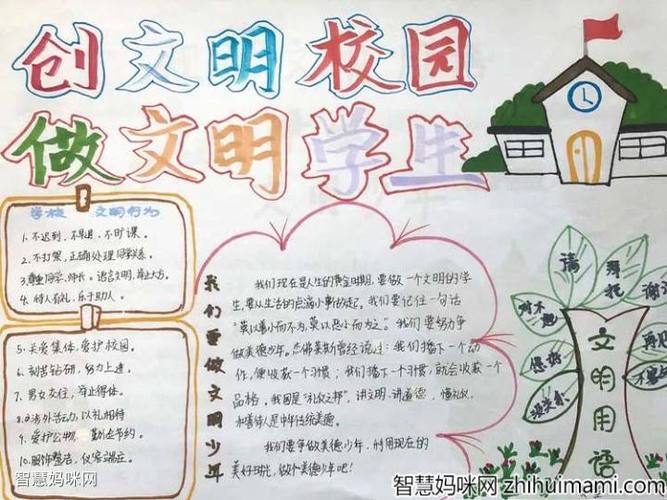 创文明校园
做文明学生
学校 文明行为
1.不迟到、不早退、不旷课。
2.不打架,正确处理同学关系。
3.尊重同学、师长。语言文明,举止大方。
4.待人有礼,乐于助人。
5.关爱集体,爱护校园。
6.刻苦钻研,努力上进。
7.男女交往,举止得体。
8.涉外活动,以礼相待
9.爱护公物,勤俭节约。
10.服饰整洁,仪容端庄。
我们重做文明少年
我们现在是人生的黄金时期,要做一个文明的学
生,要从生活的点滴小事做起。我们要记住一句话
“莫以善小而不为,莫以恶小而为之。”我们要努力争
做美德少年。杰佛莱斯曾经说过:我们播下一个动
作,便收获一个习惯;我们播下一个习惯,就会收获一个
品格,我国是“礼仪之邦”,讲文明、讲道德、懂礼仪,
中华传统美德。
我们要争做美德少年,利用现在的
美好时光,做个美德少年吧!
请
拜托
谢
对不起
您好
没关系
再见
文明用语
智慧妈咪网
智慧妈咪网 zhihuimami.com